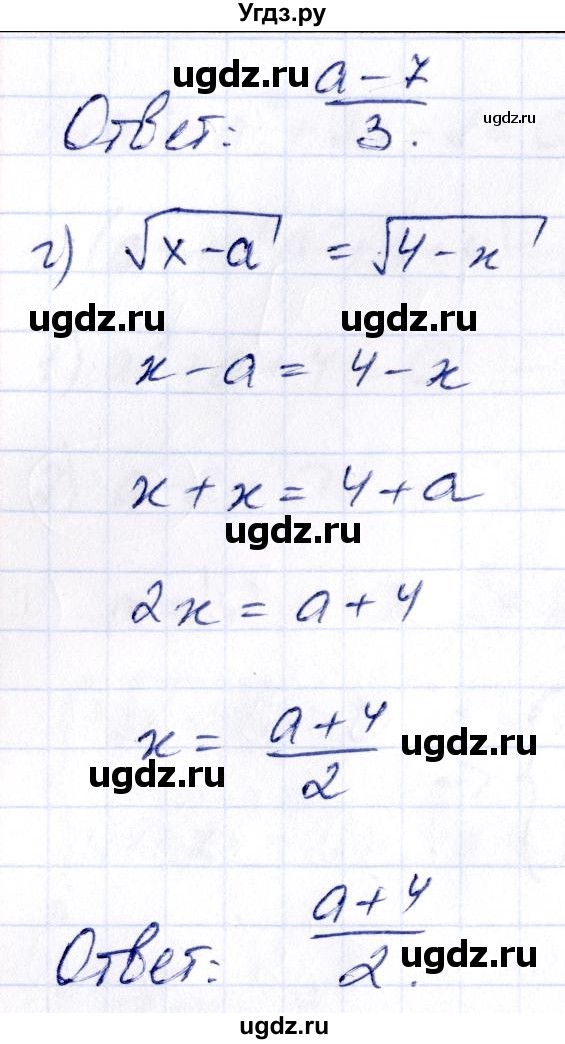 Угдз.ру
ugdz.ru
Ответ: (a-7)/3.
ugdz.ru
г) √(x-a) = √(4-x)
ugdz.ru ugdz.ru
x-a = 4-x
x+x = 4+a
ugdz.ru
2x = a+4
x = (a+4)/2
ugdz.ru
ugdz.ru
Ответ: (a+4)/2.
ugdz.ru
ugdz.ru